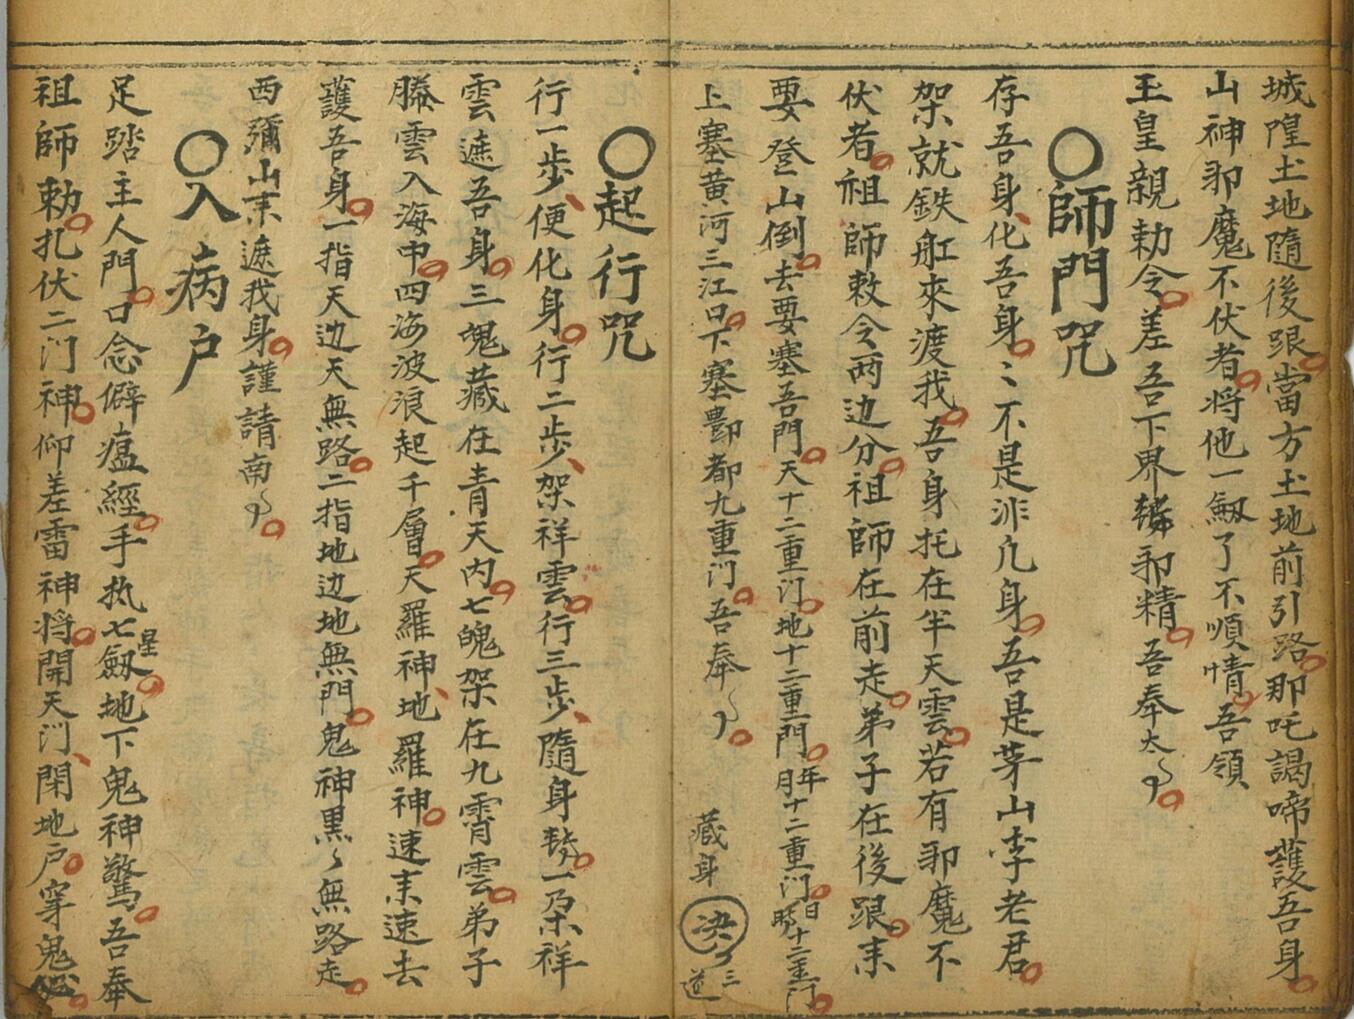 城隍土地隨後跟當方土地前引路那吒謁啼護吾身
山神邪魔不伏者将他一劔了不順情吾領
玉皇親勅令差吾下界邪精吾奉太
〇師門咒
存吾身化吾身〻不是非凢身吾是茅山李老君
架就鉄舡來渡我吾身托在半天雲若有邪魔不
伏者祖師敕令两边分祖師在前走弟子在後跟来
要登山倒去要塞吾門天十二重门地十二重門年月十二重门日時十二重门
上塞黄河三江口下塞酆都九重门吾奉 藏身 决 三道
〇起行咒
行一步便化身行二步架祥雲行三步隨身一朶祥
雲遮吾身三魂藏在青天内七魄架在九霄雲弟子
騰雲入海中四海波浪起千層天羅神地羅神速来速去
護吾身一指天边天無路二指地边地無門鬼神黒〻無路走
西彌山来遮我身謹請南
〇入病户
足踏主人門口念僻瘟經手执七星劔地下鬼神驚吾奉
祖師勅扎伏二门神仰差雷神将開天门閉地户穿鬼